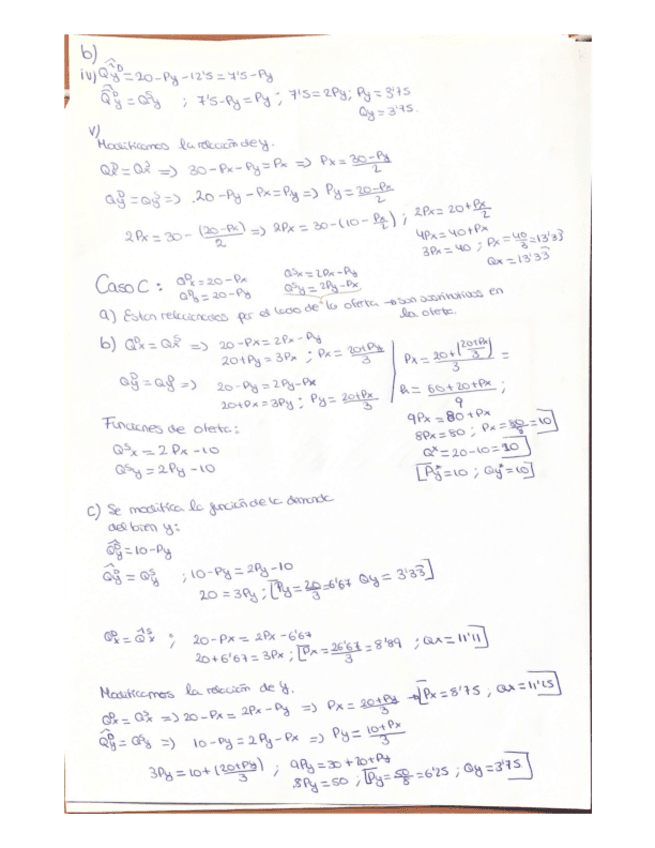 b)
iv) Q̂ᴰy = 20 - Py - 12'5 = 7'5 - Py
Q̂ᴰy = Qˢy ; 7'5 - Py = Py ; 7'5 = 2Py ; Py = 3'75
Qy = 3'75.
v)
Modificamos la relación de y.
Qᴰx = Qˢx => 30 - Px - Py = Px => Px = (30 - Py)/2
Qᴰy = Qˢy => 20 - Py - Px = Py => Py = (20 - Px)/2
2Px = 30 - (20 - Px)/2 => 2Px = 30 - (10 - Px/2) ; 2Px = 20 + Px/2
4Px = 40 + Px
3Px = 40 ; Px = 40/3 = 13'33
Qx = 13'33
Caso C : Qᴰx = 20 - Px Qˢx = 2Px - Py
Qᴰy = 20 - Py Qˢy = 2Py - Px
a) Están relacionados por el lado de la oferta → son sustitutivos en
la oferta.
b) Qᴰx = Qˢx => 20 - Px = 2Px - Py
20 + Py = 3Px ; Px = (20 + Py)/3
Qᴰy = Qˢy => 20 - Py = 2Py - Px
20 + Px = 3Py ; Py = (20 + Px)/3
Px = (20 + (20 + Px)/3)/3 =
Px = (60 + 20 + Px)/9 ;
9Px = 80 + Px
8Px = 80 ; Px = 80/8 = 10
Qˣ = 20 - 10 = 10
Py* = 10 ; Qy* = 10
Funciones de oferta :
Qˢx = 2Px - 10
Qˢy = 2Py - 10
c) Se modifica la función de la demanda
del bien y :
Q̂ᴰy = 10 - Py
Q̂ᴰy = Qˢy ; 10 - Py = 2Py - 10
20 = 3Py ; Py = 20/3 = 6'67 Qy = 3'33
Qᴰx = Q̂ˢx ; 20 - Px = 2Px - 6'67
20 + 6'67 = 3Px ; Px = 26'67/3 = 8'89 ; Qx = 11'11
Modificamos la relación de y.
Qᴰx = Qˢx => 20 - Px = 2Px - Py => Px = (20 + Py)/3 → Px = 8'75 , Qx = 11'25
Q̂ᴰy = Qˢy => 10 - Py = 2Py - Px => Py = (10 + Px)/3
3Py = 10 + (20 + Py)/3 ; 9Py = 30 + 20 + Py
8Py = 50 ; Py = 50/8 = 6'25 ; Qy = 3'75